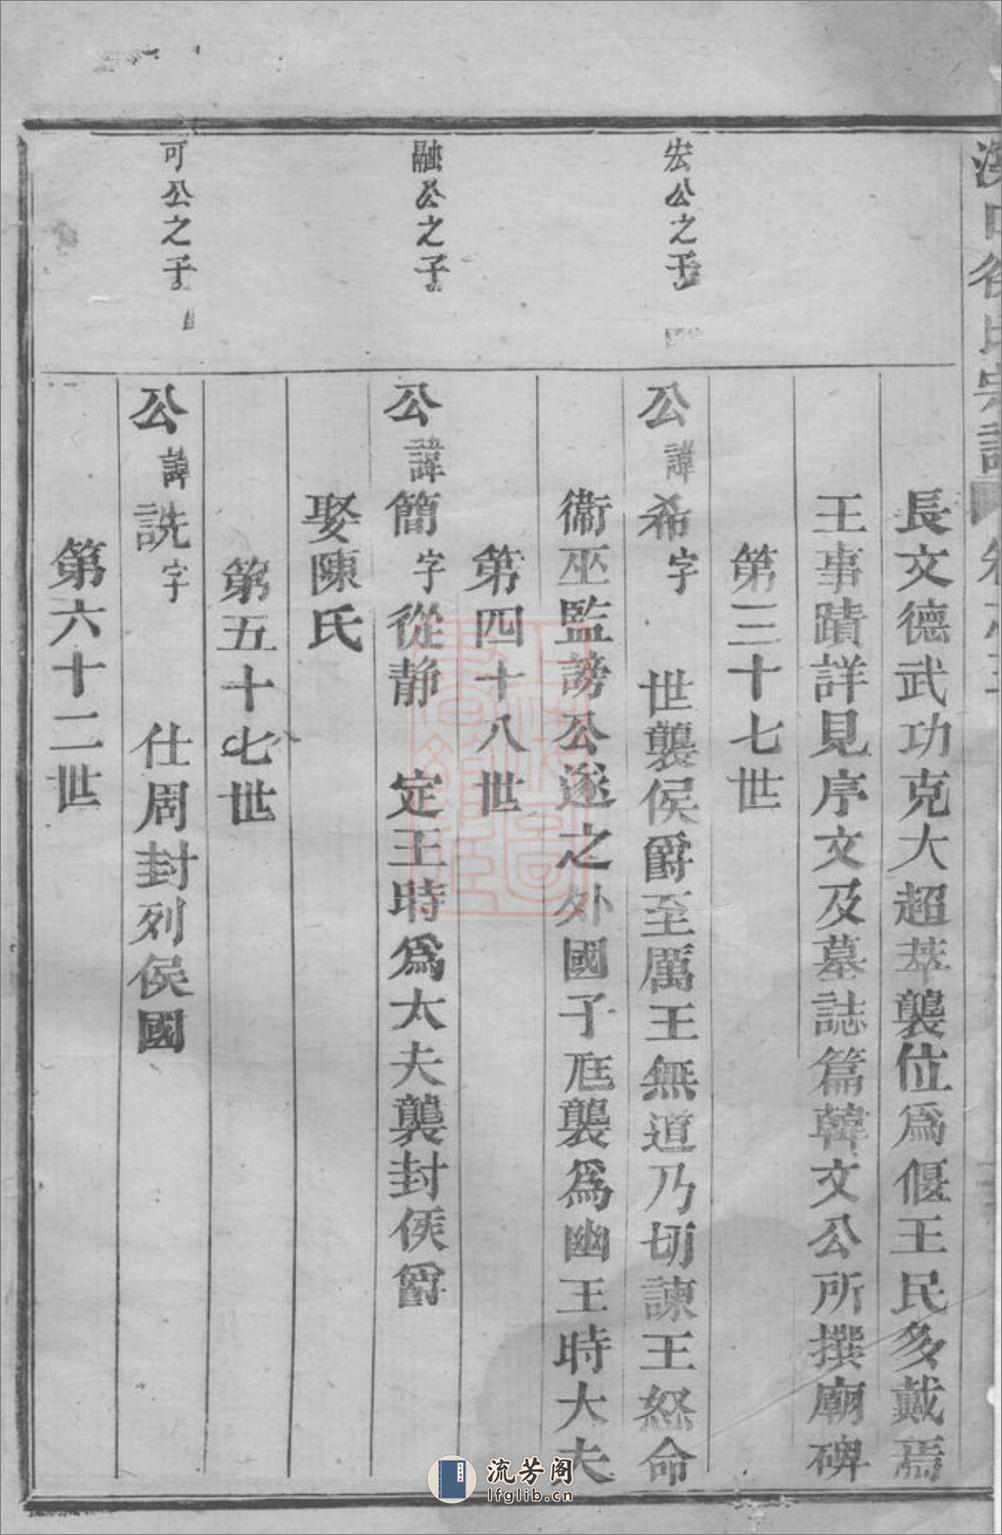 長文德武功克大超萃襲位爲偃王民多戴焉
王事蹟詳見序文及墓誌篇韓文公所撰廟碑
第三十七世
宏公之子
公諱希字 世襲侯爵至厲王無道乃切諫王怒命
衞巫監謗公遂之外國子尫襲爲幽王時大夫
第四十八世
融公之子
公諱簡字從静 定王時爲大夫襲封侯爵
娶陳氏
第五十七世
可公之子
公諱詵字 仕周封列侯國
第六十二世
流芳阁
lfglib.cn